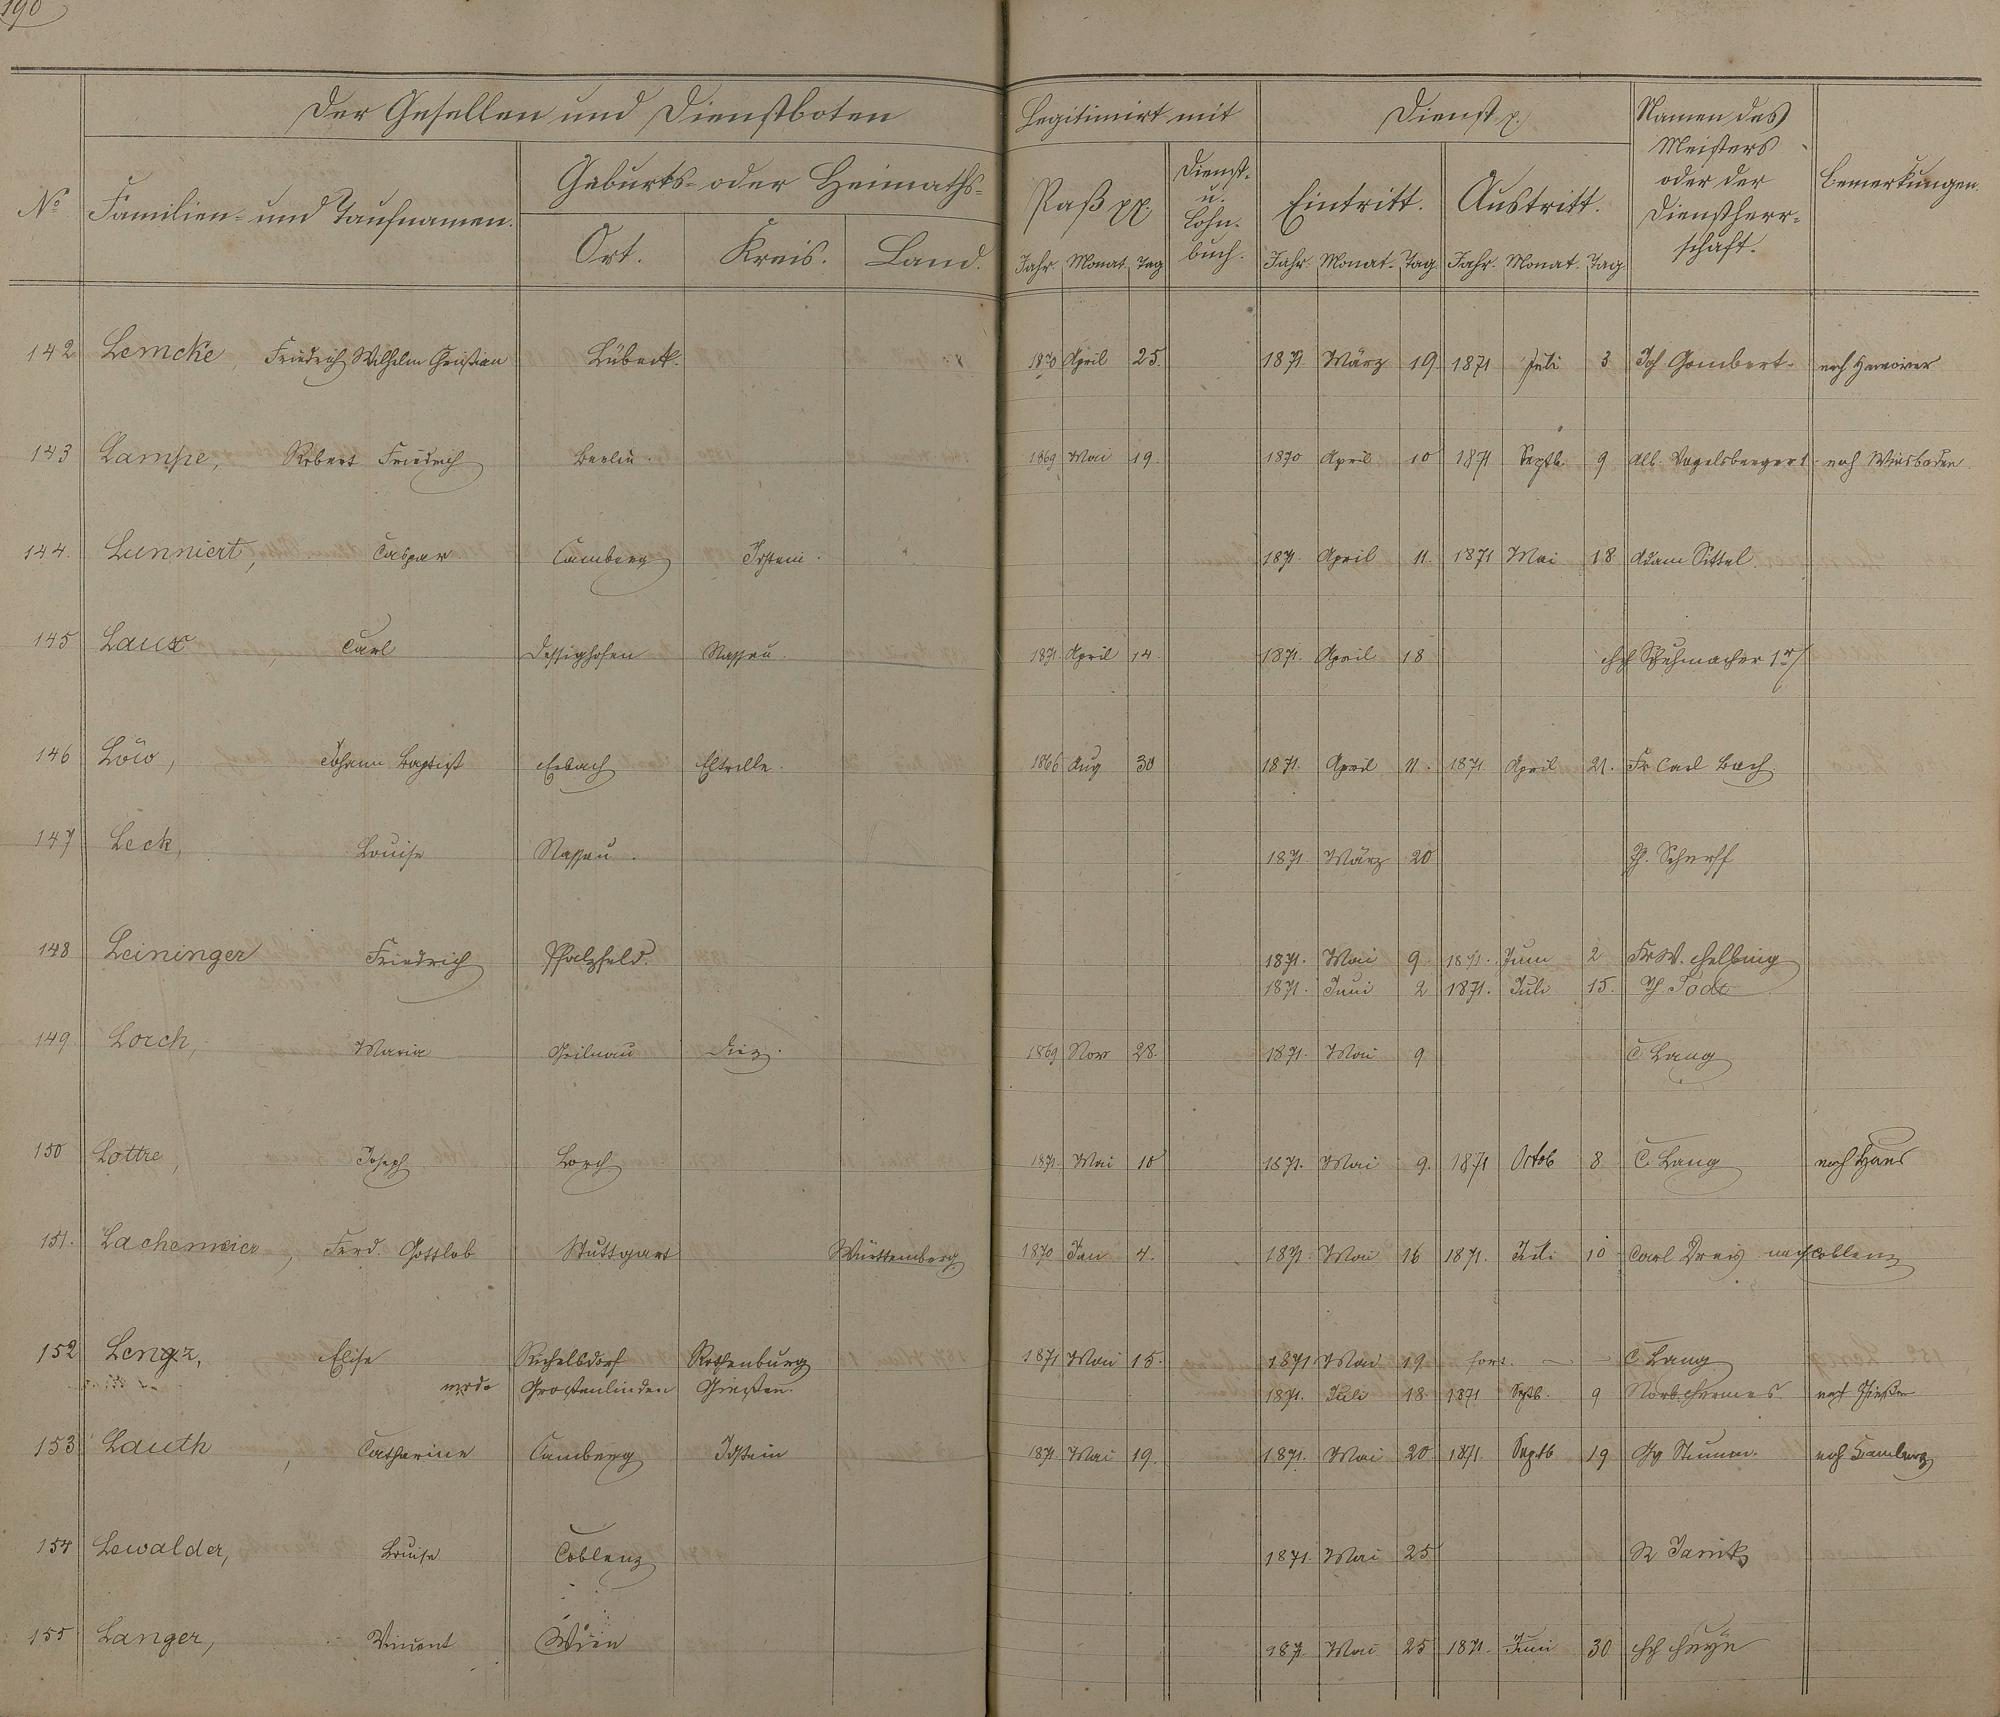 190
Der Gesellen und Dienstboten
Legitimirt mit
Dienst p.
Namen des Meisters oder der Dienstherrschaft.
Bemerkungen.
No
Familien- und Taufnamen.
Geburts- oder Heimaths-
Ort. Kreis. Land.
Paß pp.
Dienst- u. Lohnbuch.
Eintritt. Austritt.
Jahr Monat Tag Jahr. Monat. Tag Jahr. Monat. Tag
142 Lemcke, Friedrich Wilhelm Christian Lübeck. 1870 April 25. 1871. März 19. 1871 Juli 3 Joh Gombert. nach Hannover
143 Lampe, Robert Friedrich Berlin. 1869 Mai 19. 1870 April 10 1871 Septb. 9 Alb. Vogelsberger I. nach Wiesbaden
144. Lunniert, Caspar Camberg Idstein. 1871. April 11. 1871 Mai 18. Adam Sittel.
145 Laux, Carl Dessighofen Nassau. 1871. April 14. 1871. April 18 Schuhmacher 1r
146 Löw, Johann Baptist Erbach Eltville. 1866 Aug 30 1871. April 11. 1871. April 21. Fr Carl Bach
147 Leck, Louise Nassau. 1871. März 20 Scherff
148 Leininger Friedrich Pfalzfeld. 1871. Mai 9. 1871. Juni 2 Fr W. Helbing
1871. Juni 2 1871. Juli 15. Todt
149 Lorch, Maria Geilnau Diez. 1869 Nov 28. 1871. Mai 9 C. Lang
150 Lottre, Joseph Lorch 1871. Mai 10 1871. Mai 9. 1871 Octob 8 C. Lang nach Haus
151. Lachemeier, Ferd. Gottlob Stuttgart Württemberg. 1870 Jan 4. 1871. Mai 16 1871. Juli 10 Carl Dreis nach Coblenz
152 Elise Süchelsdorf Rothenburg 1871 Mai 15. 1871 Mai 19. fort. — — C. Lang
modo Grossenlinden Giessen. 1871. Juli 18. 1871 Septb. 9 nach Gießen
153 Lauth, Catharine Camberg Idstein 1871. Mai 19. 1871. Mai 20. 1871. Septb 19 Gg Stumm. nach Camberg
154 Lewalder, Louise Coblenz 1871. Mai 25
155 Langer, Vincent Wien 1871. Mai 25 1871. Juni 30